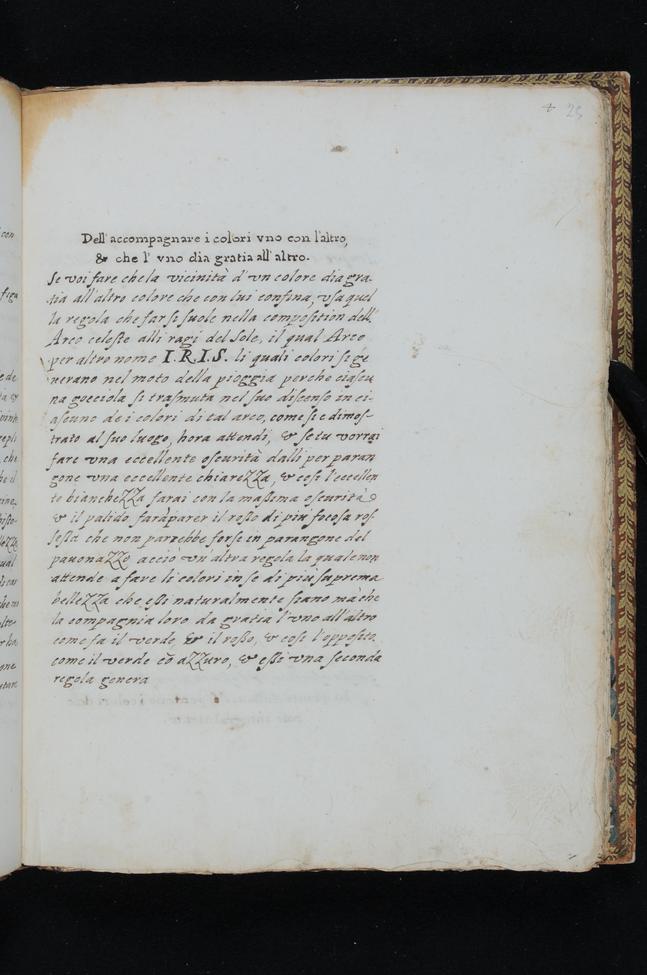 + 25
Dell'accompagnare i colori vno con l'altro,
& che l'vno dia gratia all'altro.
Se voi fare che la vicinità d'vn colore dia gra-
tia all'altro colore che con lui confina, vsa quel
la regola che far si suole nella composition dell'
Arco celeste alli ragi del sole, il qual Arco
per altro nome I.R.I.S. li quali colori si ge
nerano nel moto della pioggia perche ciascu
na gocciola si trasmuta nel suo discenso in ci-
ascuno de i colori di tal arco, come si è dimos-
trato al suo luogo, hora attendi, & se tu vorrai
fare vna eccellente oscurità dalli per paran
gone vna eccellente chiareZZa, & cosi l'eccellen
te biancheZZa farai con la massima oscurità
& il palido farà parer il rosso di piu focosa ros
sesia che non parrebbe forse in parangone del
pauonaZZo acciò vn'altra regola la quale non
attende a fare li colori in se di piu suprema
belleZZa che essi naturalmente siano mà che
la compagnia loro da gratia l'vno all'altro
come fa il verde, & il rosso, & cosi l'opposito,
come il verde cō aZZuro, & essi vna seconda
regola genera
con
figu
de
che
ual
one